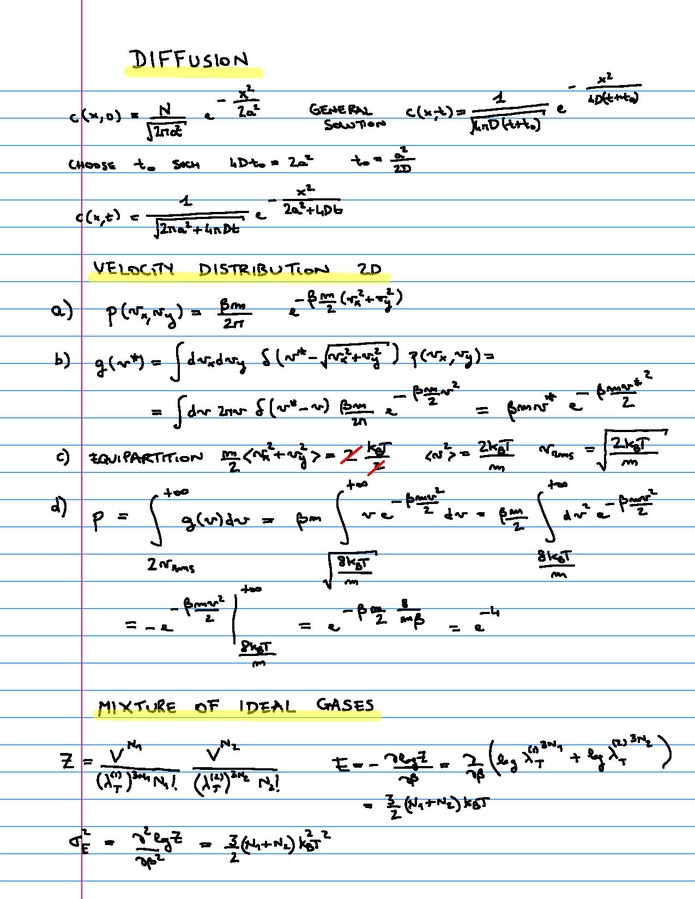 DIFFUSION
c(x,0) = N/√(2πa²) e^(-x²/2a²) GENERAL SOLUTION c(x,t) = 1/√(4πD(t+t₀)) e^(-x²/4D(t+t₀))
CHOOSE t₀ SUCH 4Dt₀ = 2a² t₀ = a²/2D
c(x,t) = 1/√(2πa²+4πDt) e^(-x²/(2a²+4Dt))
VELOCITY DISTRIBUTION 2D
a) p(vₓ,v_y) = βm/2π e^(-β m/2 (vₓ²+v_y²))
b) g(v*) = ∫dvₓdv_y δ(v*-√(vₓ²+v_y²)) p(vₓ,v_y) =
= ∫dv 2πv δ(v*-v) βm/2π e^(-βm/2 v²) = βmv* e^(-βmv*²/2)
c) EQUIPARTITION m/2 <vₓ²+v_y²> = 2 k_BT/2 <v²> = 2k_BT/m v_rms = √(2k_BT/m)
d) p = ∫_{2v_rms}^{+∞} g(v)dv = βm ∫_{√(8k_BT/m)}^{+∞} v e^(-βmv²/2) dv = βm/2 ∫_{8k_BT/m}^{+∞} dv² e^(-βmv²/2)
= -e^(-βmv²/2) |_{8k_BT/m}^{+∞} = e^(-β m/2 8/mβ) = e^(-4)
MIXTURE OF IDEAL GASES
Z = V^(N₁)/((λ_T^(1))^(3N₁) N₁!) V^(N₂)/((λ_T^(2))^(3N₂) N₂!) E = -∂logZ/∂β = ∂/∂β (log λ_T^(1)3N₁ + log λ_T^(2)3N₂)
= 3/2 (N₁+N₂) k_BT
σ_E² = ∂²logZ/∂β² = 3/2 (N₁+N₂) k_B²T²